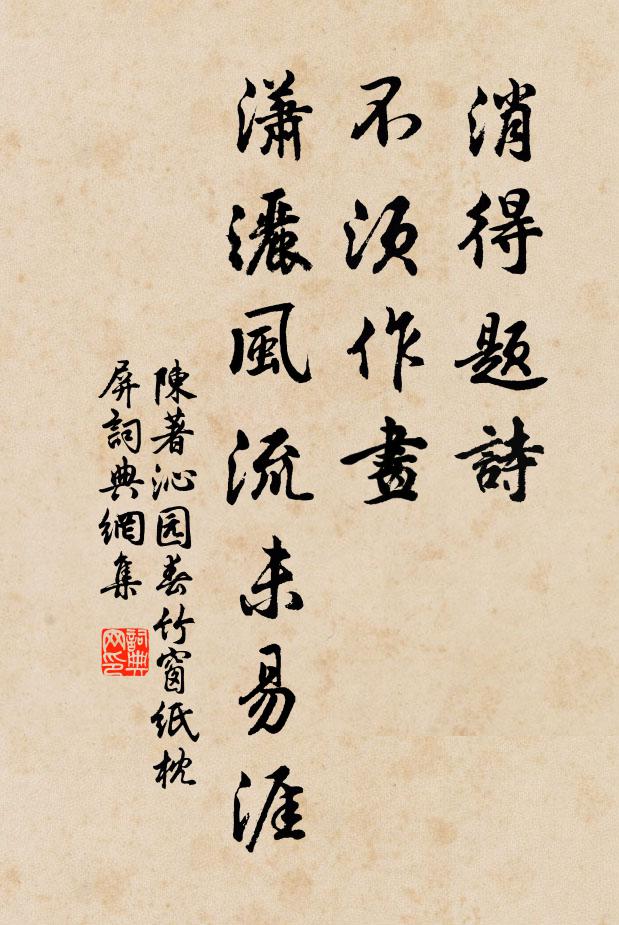 消得题詩
不须作畫
潇灑風流未易涯
陳著沁园春竹窗紙枕
屏詞典網集
詞典网印